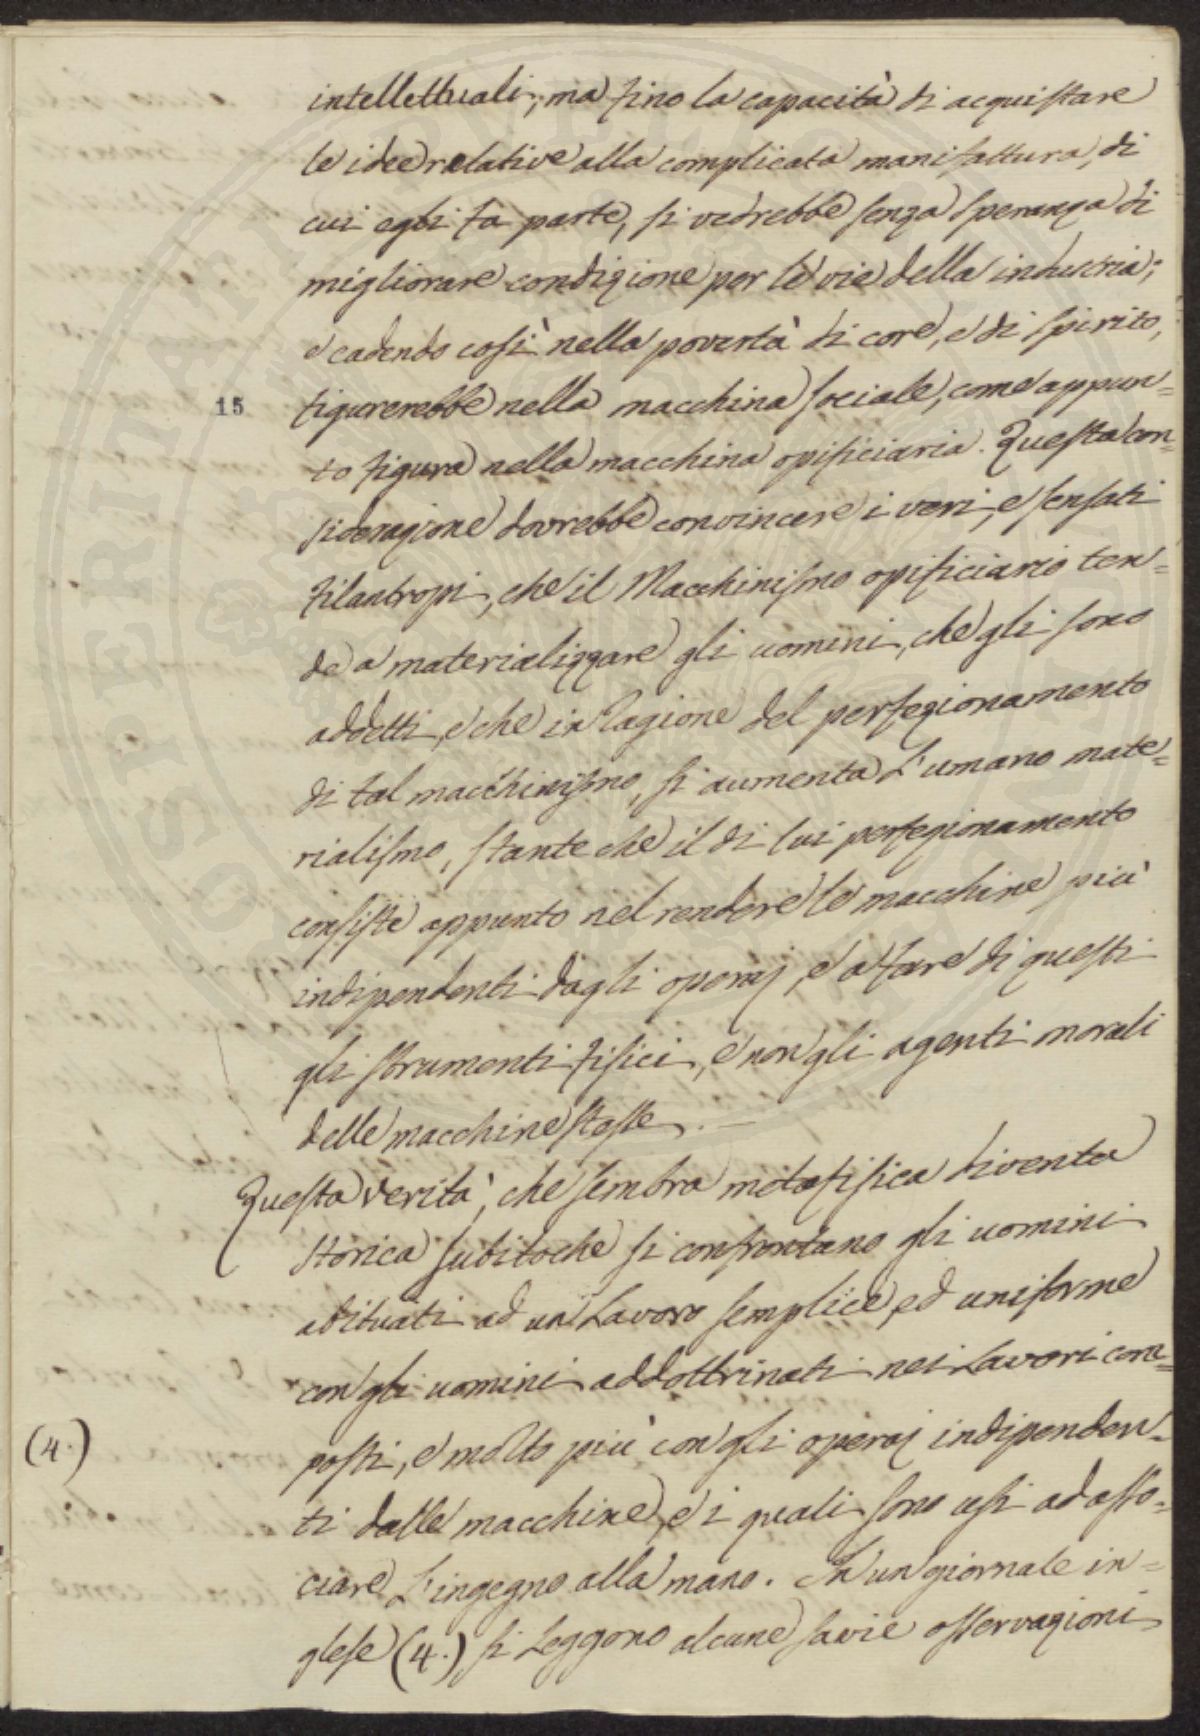 intellettuali, ma fino la capacità di acquistare
le idee relative alla complicata manifattura, di
cui egli fa parte, si vedrebbe senza speranza di
migliorare condizione per le vie della industria;
e cadendo così nella povertà di core, e di spirito,
15 figurerebbe nella macchina sociale, come appun=
to figura nella macchina opificiaria. Questa con=
siderazione dovrebbe convincere i veri, e sensati
filantropi, che il Macchinismo opificiario ten=
de a materializzare gli uomini, che gli sono
addetti, e che in ragione del perfezionamento
di tal macchinismo, si aumenta l'umano mate=
rialismo, stante che il di lui perfezionamento
consiste appunto nel rendere le macchine più
indipendenti dagli operaj, e a fare di questi
gli strumenti fisici, e non gli agenti morali
delle macchine stesse. —
Questa verità, che sembra metafisica diventa
storica subitoche si confrontano gli uomini
abituati ad un lavoro semplice, ed uniforme
con gli uomini addottrinati nei lavori com=
(4.) posti, e molto più con gli operaj indipenden=
ti dalle macchine, e i quali sono usi ad asso=
ciare l'ingegno alla mano. In un giornale in=
glese (4.) si leggono alcune savie osservazioni
OSPERINATI